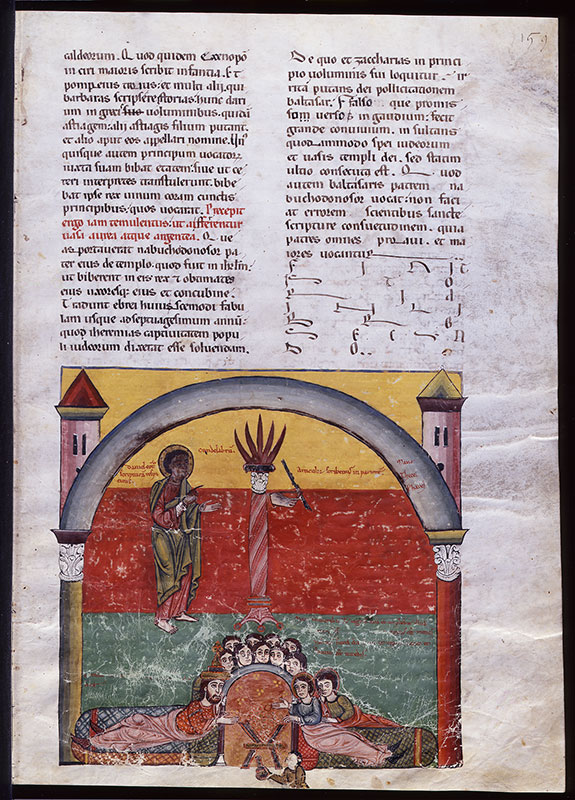 caldeorum. Quod quidem Exenopō
in ciri maioris scribit infantia. Et
pompeius troius: et multi alij. qui
barbaras scripsere istorias: hunc dari
um in greci suis voluminibus. quidā
astiagem: alij astiagis filium putant.
et alio aput eos appellari nomine. Un'
quisque autem principum vocator
iuxta suam bibat etatem: siue ut ce
teri interpretes transtulerunt. bibe
bat ipse rex uinum coram cunctis
principibus. quos uocarat. Precepit
ergo iam temulentus: ut afferentur
uasa aurea atque argentea. Que
as portauerat nabuchodonosor pa
ter eius de templo. quod fuit in ihrlm:
ut biberent in eis rex et obtimates
eius uxoresque eius et concubine.
Tradunt ebrei huiuscemodi fabu
lam usque ad septuagesimum annū:
quod iheremias captiuitatem popu
li iudeorum dixerat esse soluendam.
De quo et zaccharias in princi
pio uoluminis sui loquitur. ir
rita putans dei pollicitationem
baltasar. & falso que promis
sum verso in gaudium: fecit
grande conuiuium. insultans
quodammodo spei iudeorum
et uasis templi dei. sed statim
ultio consecuta est. Quod
autem baltasaris patrem na
buchodonosor uocat: non faci
at errorem scientibus sancte
scripture consuetudinem. qua
patres omnes proaui. et ma
iores uocantur